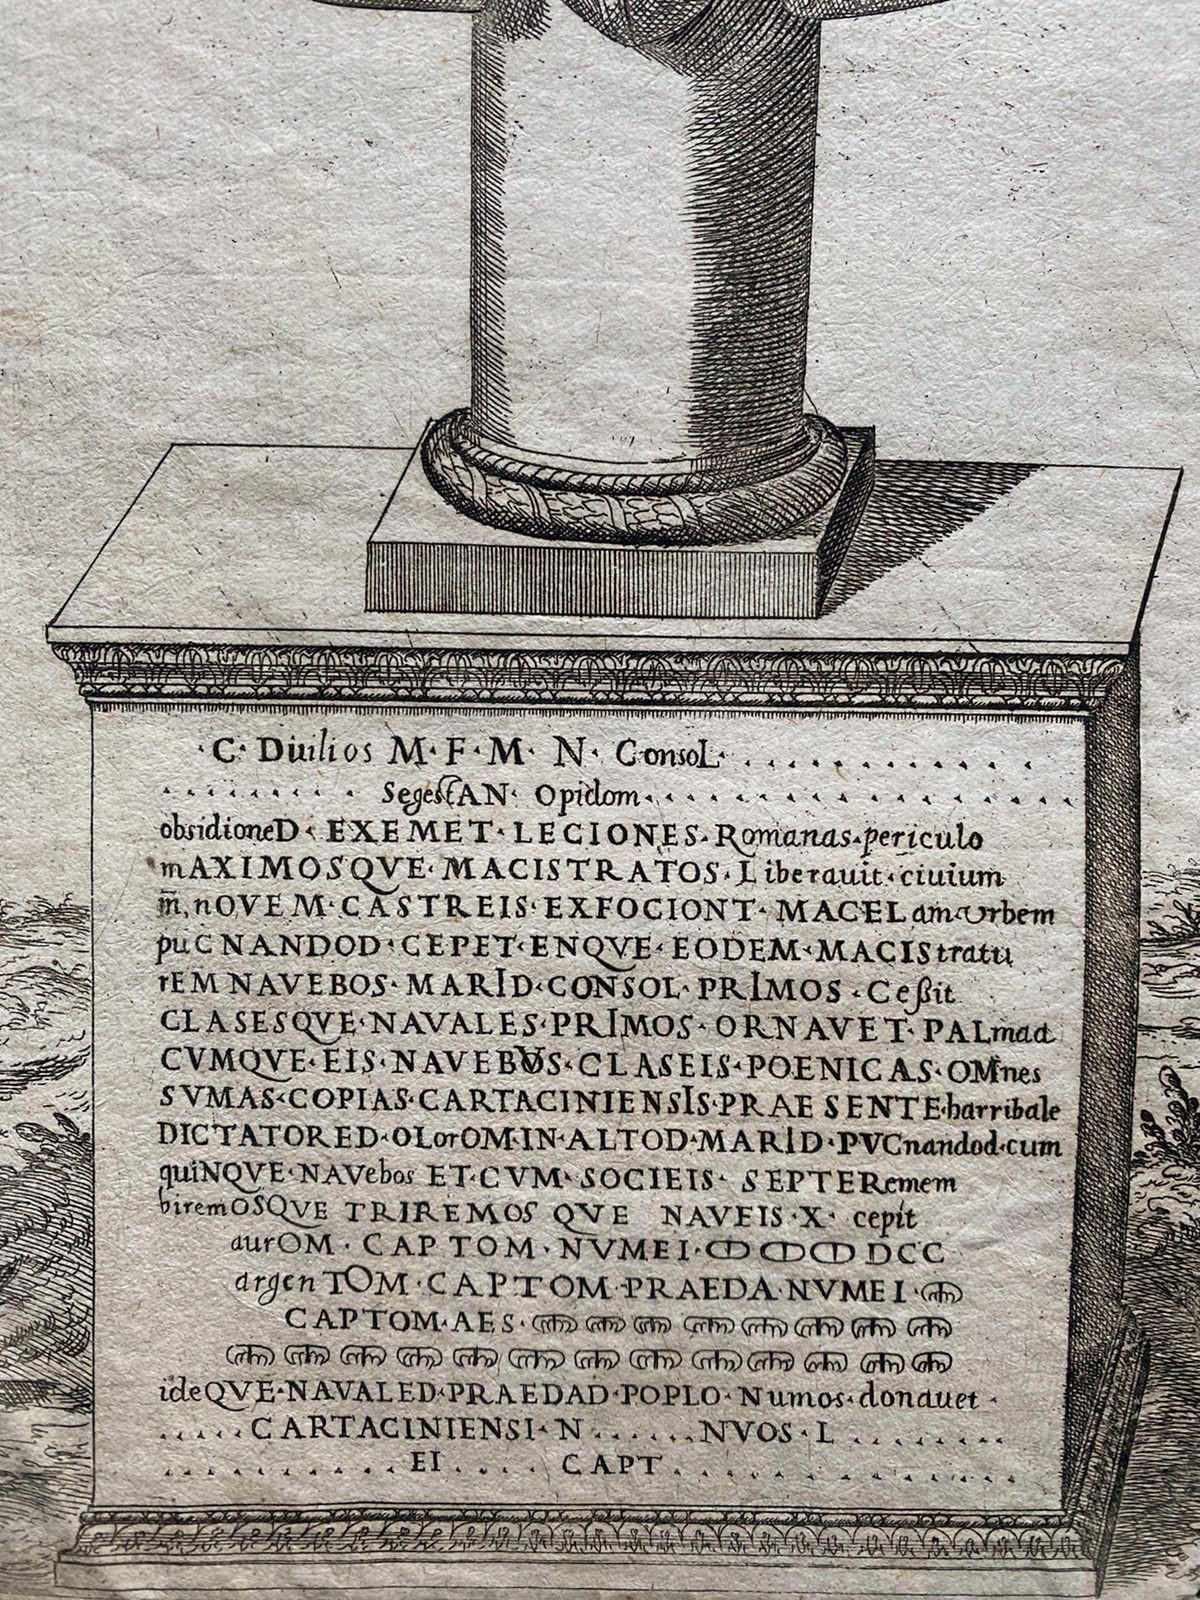 ·C· Duilios M·F·M· N· Consol· . . . . . . . . . . . .
. . . . . . . . . SegestAN· Opidom . . . . . . . . . . . . . . . .
obsidioneD· EXEMET·LECIONES·Romanas·periculo
mAXIMOSQVE·MACISTRATOS·Liberauit·ciuium
m̅,nOVEM·CASTREIS·EXFOCIONT·MACELam vrbem
puCNANDOD·CEPET·ENQVE·EODEM·MACIStratu
rEM NAVEBOS·MARID·CONSOL·PRIMOS·Ceßit
CLASESQVE·NAVALES·PRIMOS·ORNAVET·PALmaa
CVMQVE·EIS·NAVEBVS·CLASEIS·POENICAS·OMnes
SVMAS·COPIAS·CARTACINIENSIS·PRAESENTE·harribale
DICTATORED·OLorOM·IN·ALTOD·MARID·PVCnandod·cum
quiNQVE·NAVebos ET·CVM·SOCIEIS· SEPTERemem
biremOSQVE TRIREMOSQVE NAVEIS·X· cepit
aurOM·CAPTOM·NVMEI·ↀↀↀDCC
argenTOM·CAPTOM·PRAEDA·NVMEI·ↈ
CAPTOM·AES·ↈ ↈ ↈ ↈ ↈ ↈ ↈ ↈ
ↈ ↈ ↈ ↈ ↈ ↈ ↈ ↈ ↈ ↈ ↈ ↈ ↈ
ideQVE·NAVALED·PRAEDAD·POPLO·Numos·donauet·
. . . . . CARTACINIENSI·N . . . . . . NVOS·L . . . . . . . .
. . . . . . . . . . . EI . . . . CAPT . . . . . . . . . . . . . .